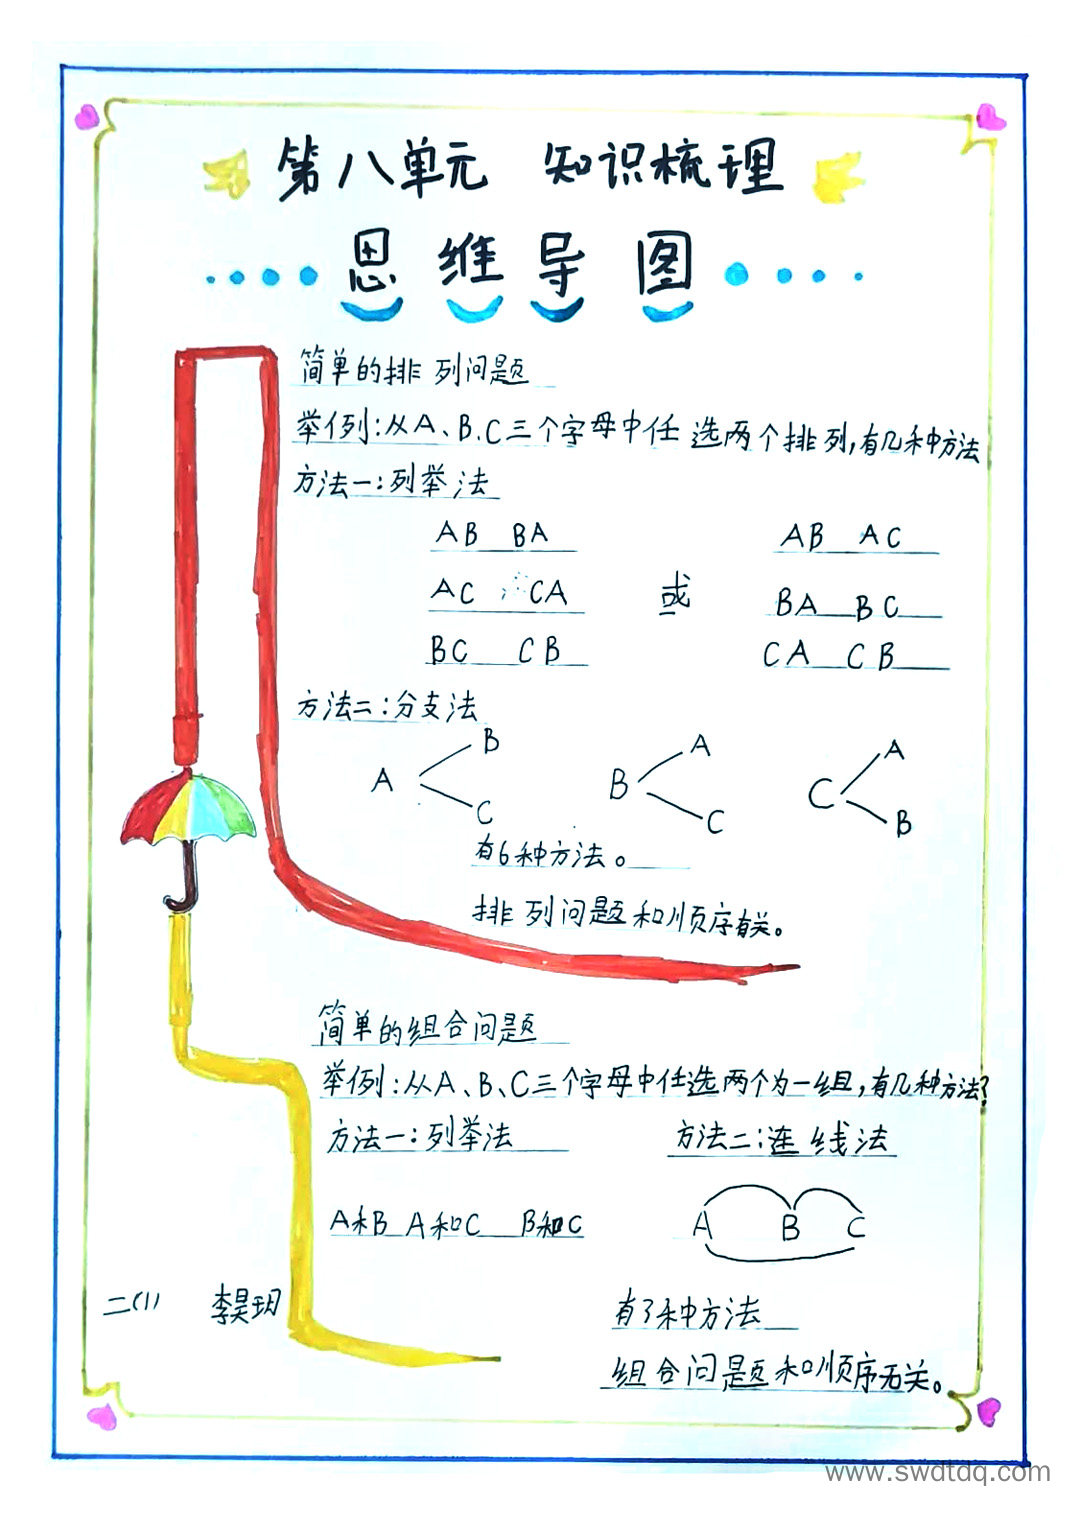 第八单元 知识梳理
思维导图
简单的排列问题
举例:从A、B、C三个字母中任选两个排列,有几种方法
方法一:列举法
AB BA AB AC
AC CA 或 BA BC
BC CB CA CB
方法二:分支法
A B C B A C C A B
有6种方法。
排列问题和顺序有关。
简单的组合问题
举例:从A、B、C三个字母中任选两个为一组,有几种方法?
方法一:列举法 方法二:连线法
A和B A和C B和C A B C
二(1) 李昊玥
有3种方法
组合问题和顺序无关。
www.swdtdq.com